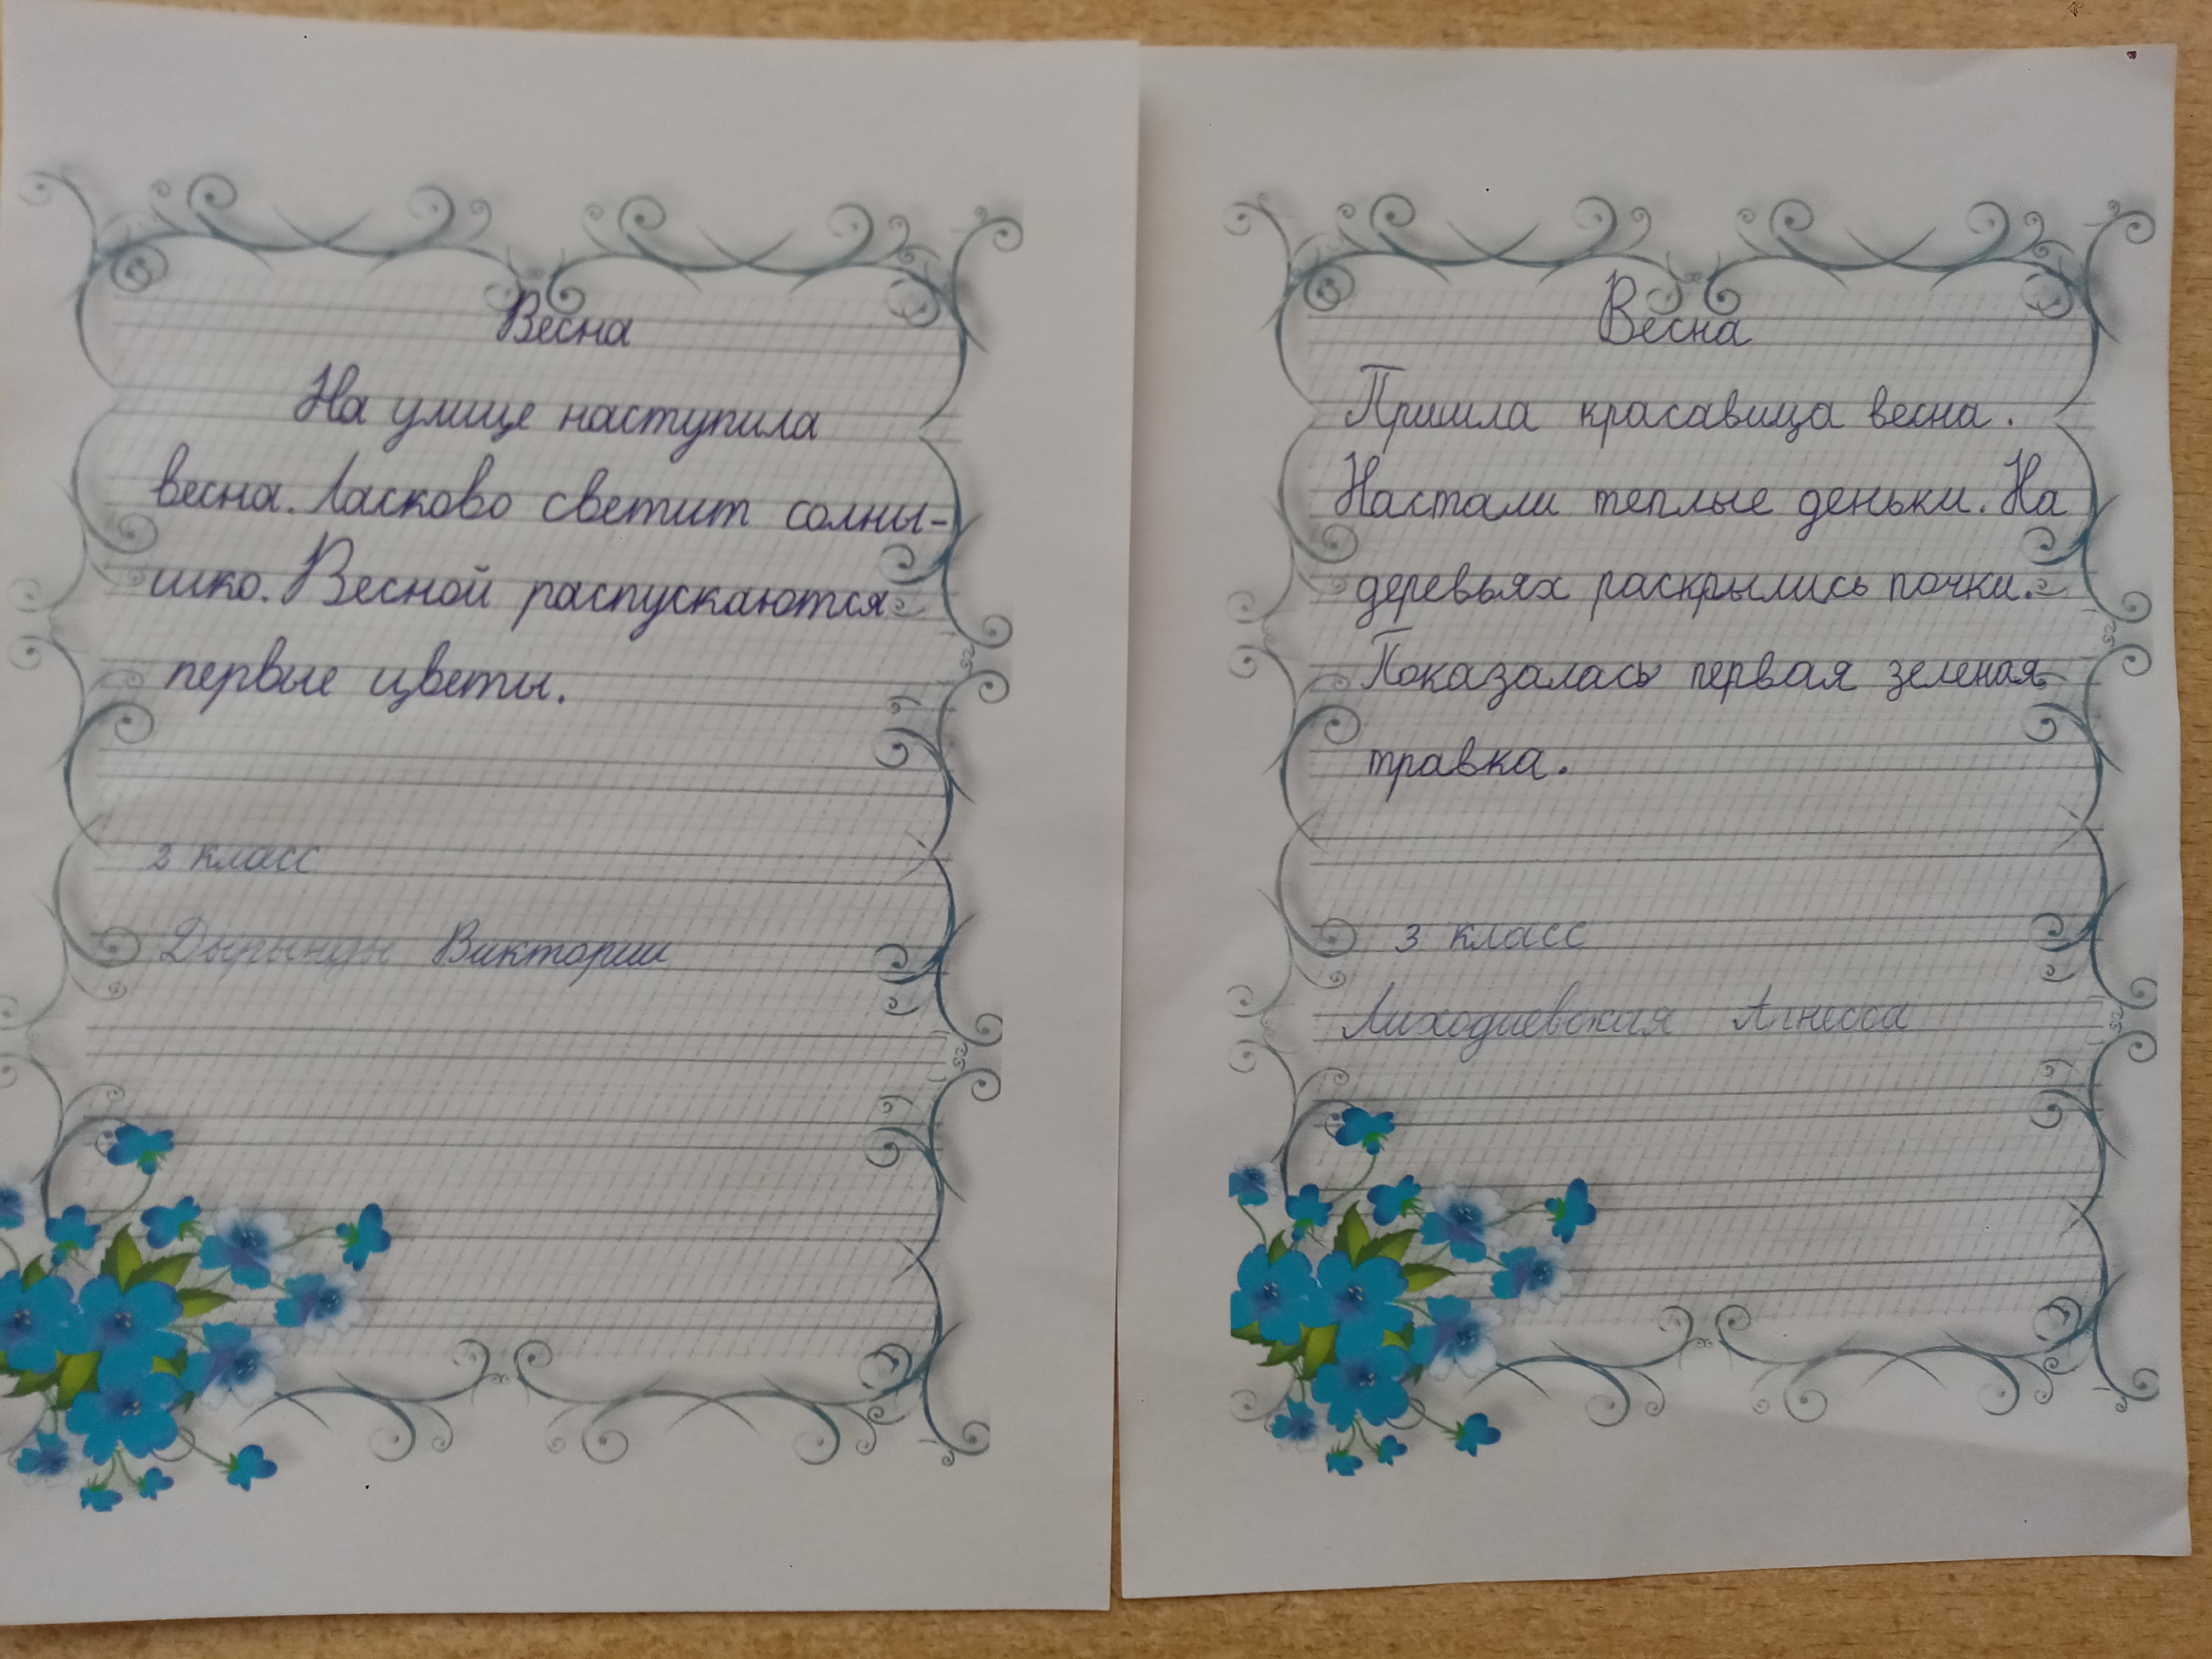 Весна
На улице наступила
весна. Ласково светит солны-
шко. Весной распускаются
первые цветы.
2 класс
Дырынды Виктории
Весна
Пришла красавица весна.
Настали теплые деньки. На
деревьях раскрылись почки.
Показалась первая зеленая
травка.
3 класс
Лиходиевская Агнесса